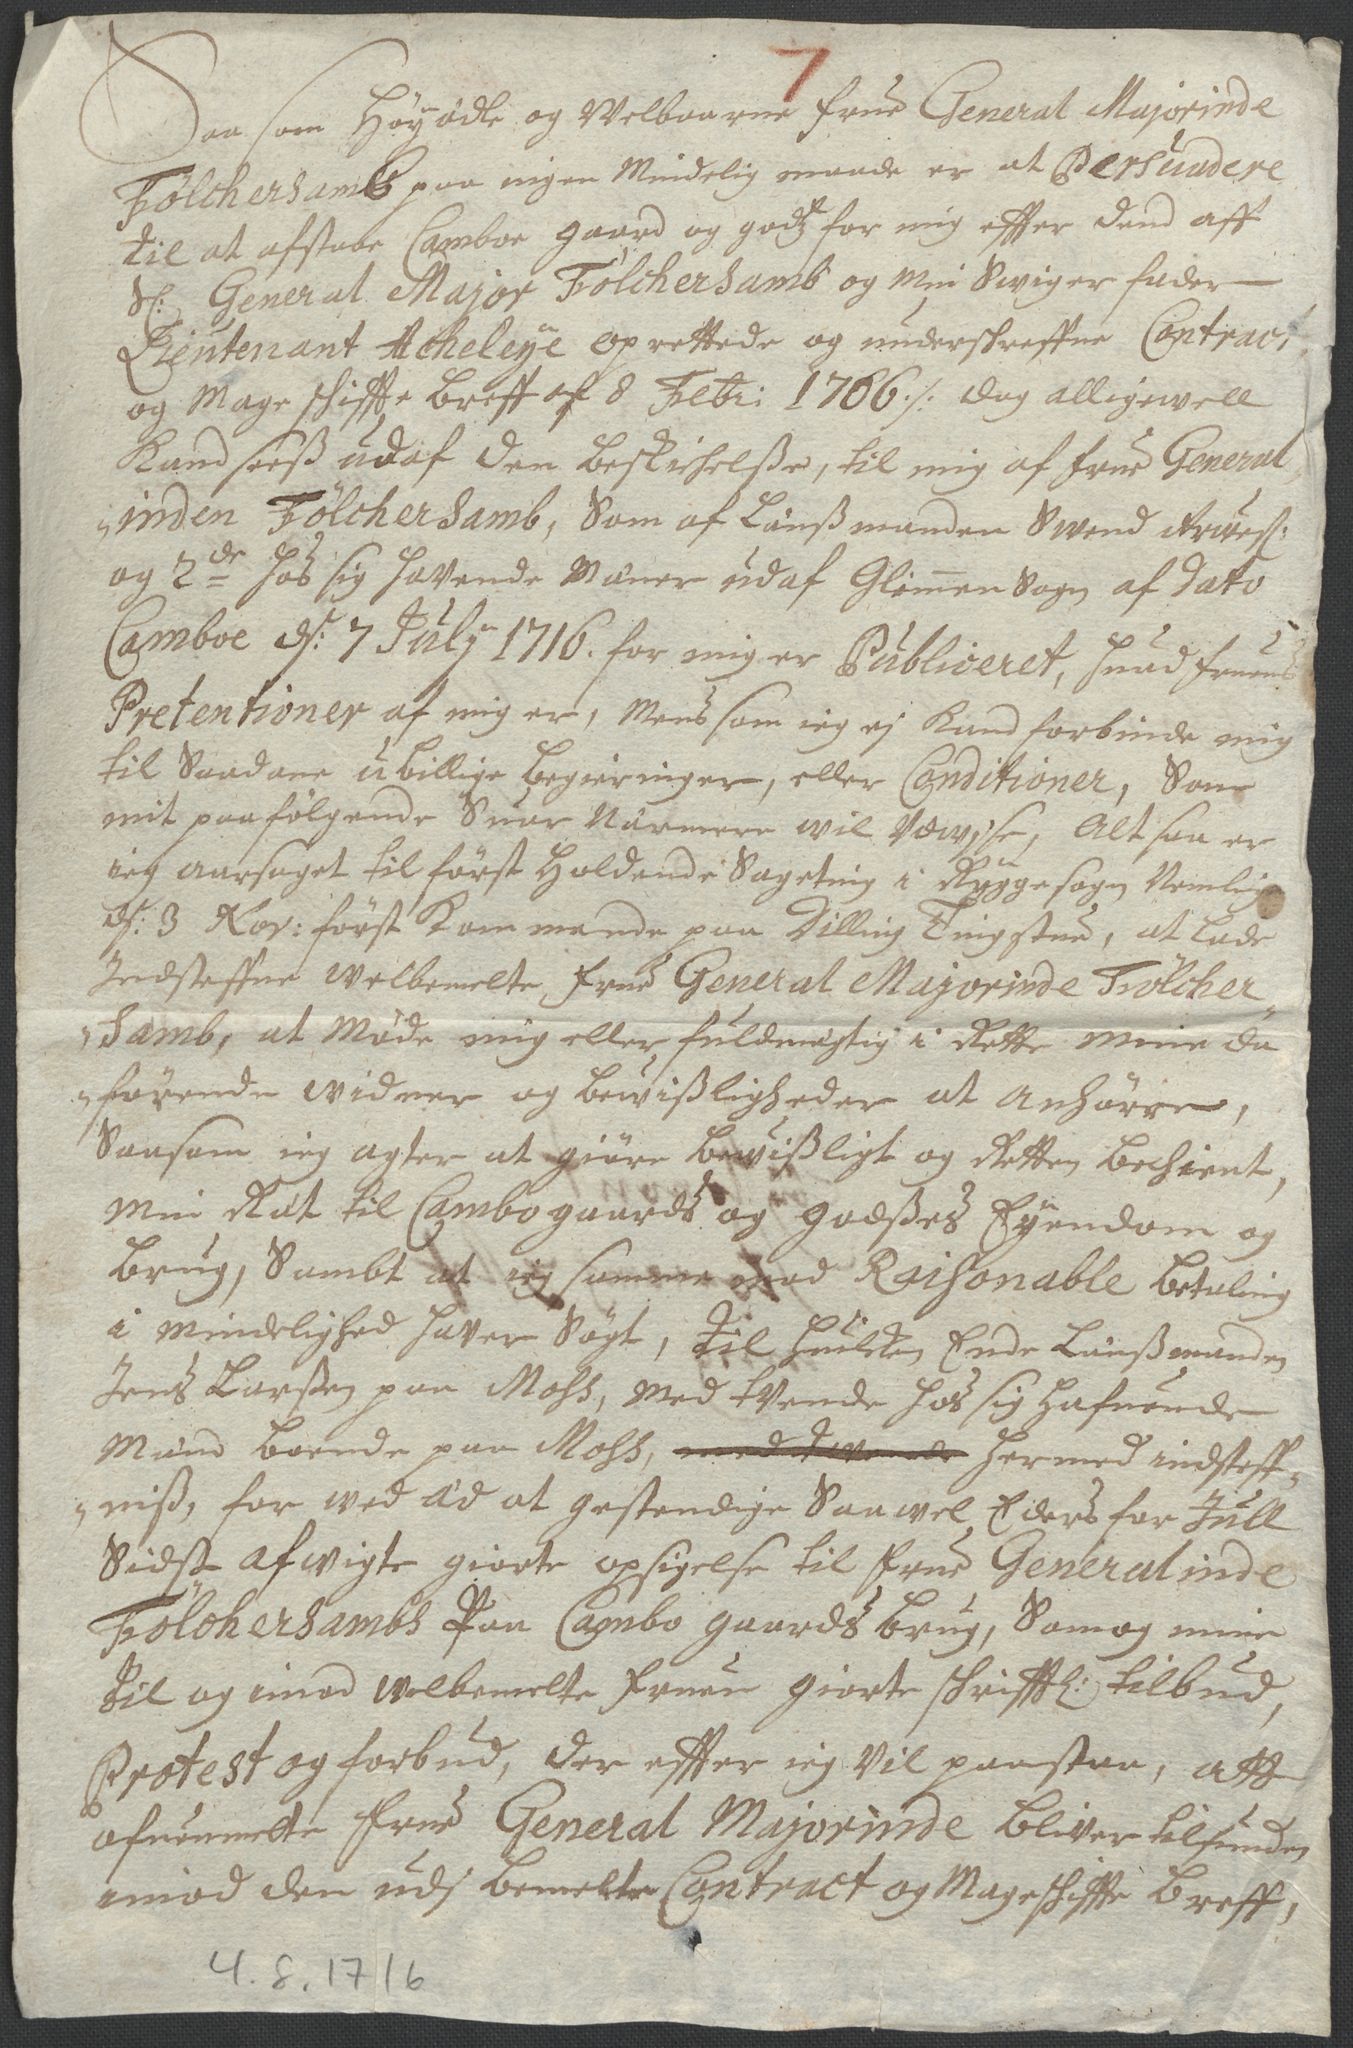 7
Saa som Høyædle og Welbaarne frue General Majorinde
Fölchersamb paa ingen Mindelig maade er at Persuadere
til at afstaae Camboe gaard og godtz for mig effter dend aff
Sl: General Major Fölchersamb og Min Swiger fader
Lieutenant Acheleÿe oprettede og underschreffne Contract
og Mageschiffte Breff af 8 Febr: 1706 ./. dog alligewell
Kand seeß udaf den Beskichelße, til mig af frue General
„inden Fölchersamb, Som af Länßmanden Swend
og 2de hos sig havende Mæner udaf Glemmen Sogn af dato
Camboe d: 7 Julÿ 1716. for mig er Publiceret, huad fruens
Pretentioner af mig er, Mens som ieg ej Kand forbinde mig
til Saadane ubillige Begieringer, eller Conditioner, Som
mit paafølgende Suar Nærmere wil udwise, Alt saa er
ieg aarsaget til først Holdende Sageting i Rÿgge sogn Nemlig
d: 3 Nov: først Kommende paa Dilling Tingstue, at lade
Indsteffne welbemelte frue General Majorinde Fölcher„
„samb, at Møde mig eller fuldmegtig i Rette mine da
„førende widner og bewißligheder at anhørre,
Saasom ieg agter at giøre bewißligt og Retten bekient,
Min Ræt til Cambo gaards og godßes Eÿendom og
Brug, Sambt at ieg samme mod Raisonable betaling
i Mindelighed haver Søgt, til huilken Ende Länßmanden
Jens Larßen paa Moss, med tvende hos sig hafuende
Mænd boende paa Moss, hermed indsteff„
„niß, for wed Æd at gestendige Saawel Eders for Jull
Sidst afwigte giorte opsigelse til frue Generalinde
Fölchersambs Paa Cambo gaards brug, Som og mine
til og imod welbemelte fruen giorte schrifftl: tilbud,
Protest og forbud, der effter ieg Vil paastaa, att
ofuenmelte frue General Majorinde bliver tilfunden
imod den udj bemelte Contract og Mageschiffte Breff,
4.8.1716